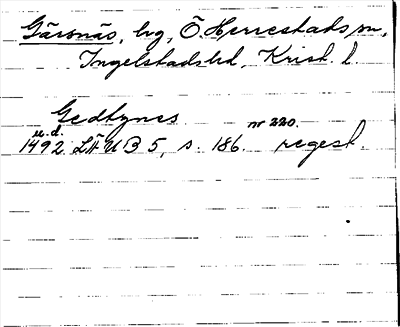 Gärsnäs, bg, Ö. Herrestads sn,
Ingelstads hd, Krist. l.
Gedtynes nr 220.
u.d.
1492 LÄUB 5, s. 186. regest.